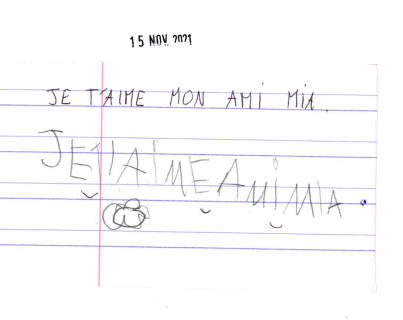 15 NOV. 2021
JE T'AIME MON AMI MIA.
JE T'AIME AMI MIA.